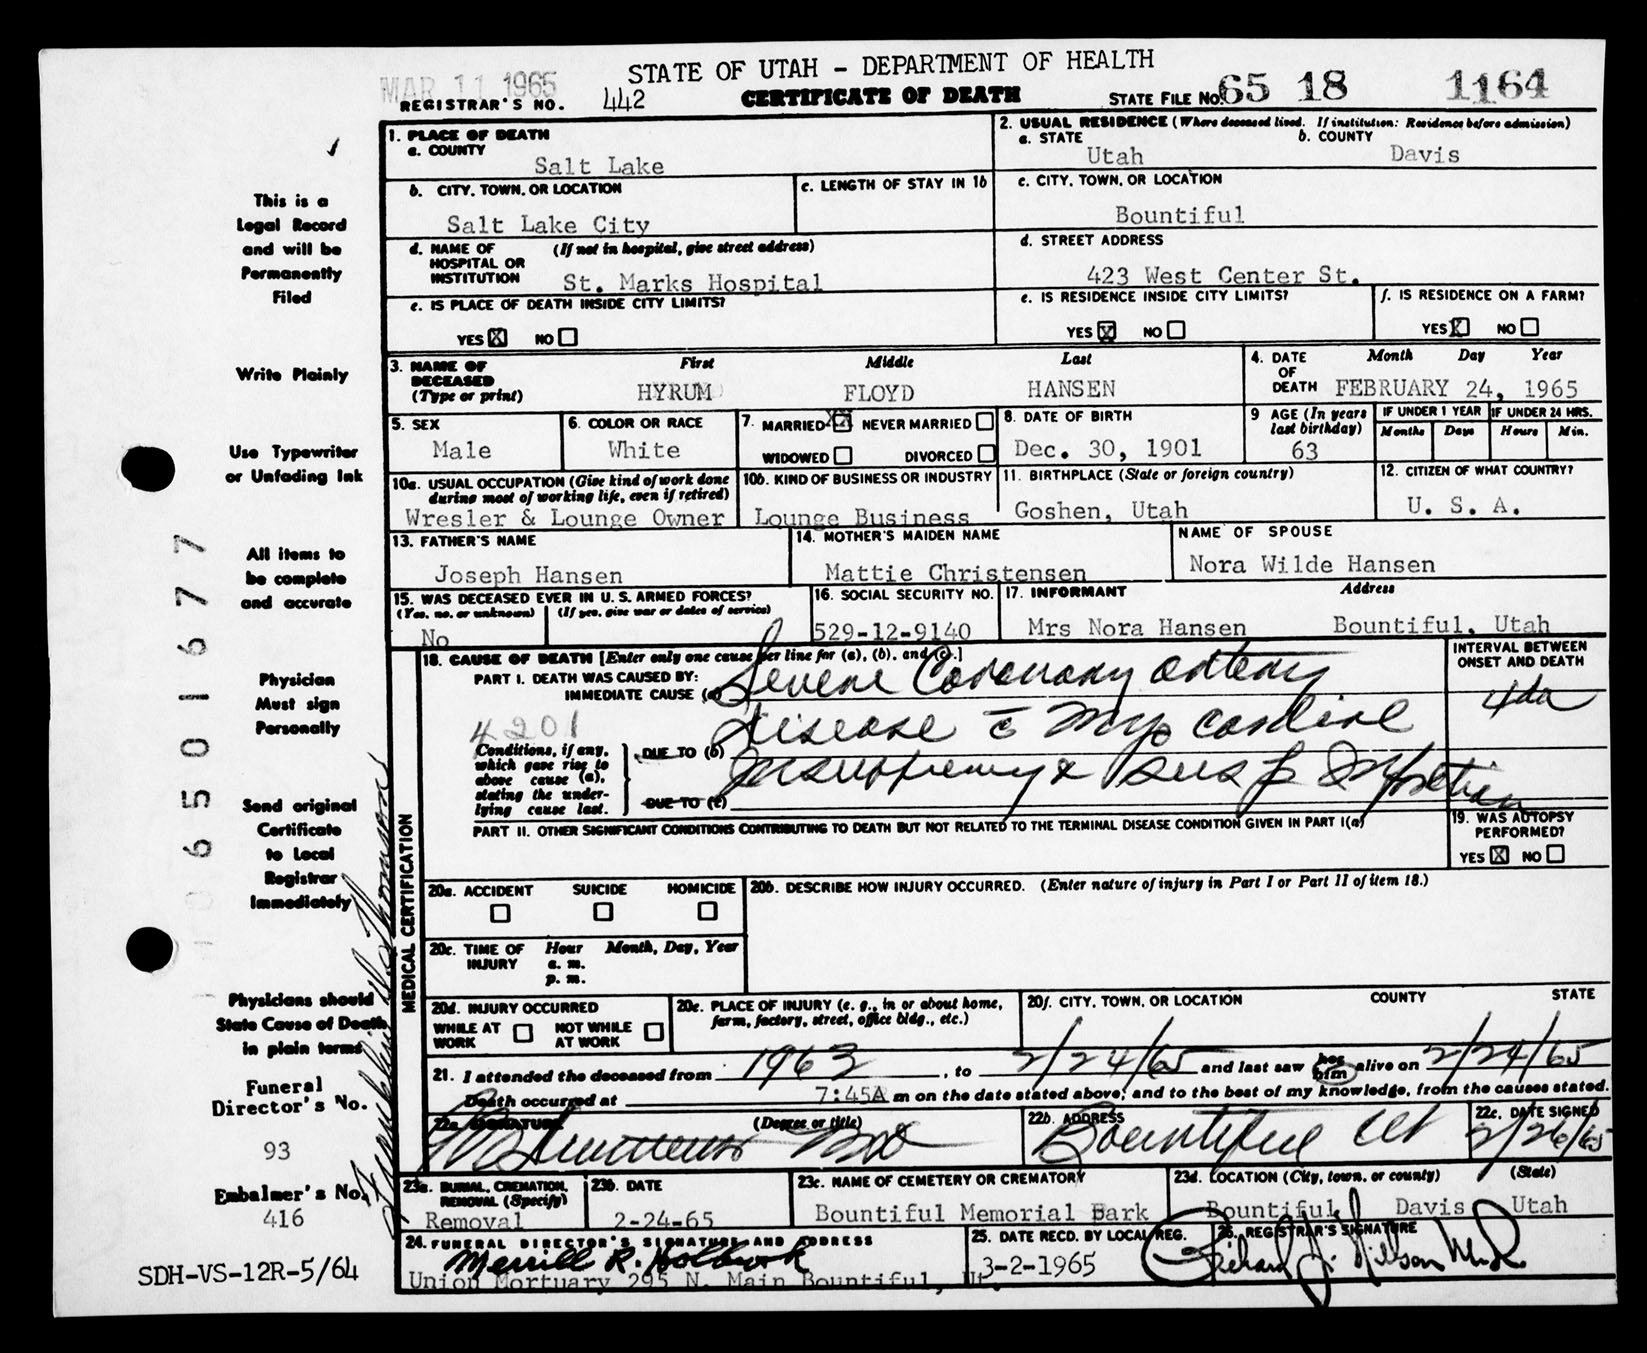 MAR 11 1965
STATE OF UTAH - DEPARTMENT OF HEALTH
REGISTRAR'S NO. 442
CERTIFICATE OF DEATH
STATE FILE NO. 65 18 1164
1. PLACE OF DEATH
a. COUNTY
Salt Lake
2. USUAL RESIDENCE (Where deceased lived. If institution: Residence before admission)
a. STATE
Utah
b. COUNTY
Davis
b. CITY, TOWN, OR LOCATION
Salt Lake City
c. LENGTH OF STAY IN 1b
c. CITY, TOWN, OR LOCATION
Bountiful
d. NAME OF HOSPITAL OR INSTITUTION
(If not in hospital, give street address)
St. Marks Hospital
d. STREET ADDRESS
423 West Center St.
e. IS PLACE OF DEATH INSIDE CITY LIMITS?
YES X NO
e. IS RESIDENCE INSIDE CITY LIMITS?
YES X NO
f. IS RESIDENCE ON A FARM?
YES X NO
3. NAME OF DECEASED
(Type or print)
First Middle Last
HYRUM FLOYD HANSEN
4. DATE OF DEATH
Month Day Year
FEBRUARY 24, 1965
5. SEX
Male
6. COLOR OR RACE
White
7. MARRIED XX NEVER MARRIED
WIDOWED DIVORCED
8. DATE OF BIRTH
Dec. 30, 1901
9 AGE (In years last birthday)
63
IF UNDER 1 YEAR
Months Days
IF UNDER 24 HRS.
Hours Min.
10a. USUAL OCCUPATION (Give kind of work done during most of working life, even if retired)
Wresler & Lounge Owner
10b. KIND OF BUSINESS OR INDUSTRY
Lounge Business
11. BIRTHPLACE (State or foreign country)
Goshen, Utah
12. CITIZEN OF WHAT COUNTRY?
U. S. A.
13. FATHER'S NAME
Joseph Hansen
14. MOTHER'S MAIDEN NAME
Mattie Christensen
NAME OF SPOUSE
Nora Wilde Hansen
15. WAS DECEASED EVER IN U. S. ARMED FORCES?
(Yes, no, or unknown) (If yes, give war or dates of service)
No
16. SOCIAL SECURITY NO.
529-12-9140
17. INFORMANT Address
Mrs Nora Hansen Bountiful, Utah
MEDICAL CERTIFICATION
18. CAUSE OF DEATH [Enter only one cause per line for (a), (b), and (c).]
PART I. DEATH WAS CAUSED BY:
IMMEDIATE CAUSE (a)
Severe Coronary artery
INTERVAL BETWEEN ONSET AND DEATH
4da
4201
disease c̄ myocardial
Conditions, if any, which gave rise to above cause (a), stating the underlying cause last.
DUE TO (b)
DUE TO (c)
PART II. OTHER SIGNIFICANT CONDITIONS CONTRIBUTING TO DEATH BUT NOT RELATED TO THE TERMINAL DISEASE CONDITION GIVEN IN PART I(a)
19. WAS AUTOPSY PERFORMED?
YES X NO
20a. ACCIDENT SUICIDE HOMICIDE
20b. DESCRIBE HOW INJURY OCCURRED. (Enter nature of injury in Part I or Part II of item 18.)
20c. TIME OF INJURY
Hour Month, Day, Year
a. m.
p. m.
20d. INJURY OCCURRED
WHILE AT WORK NOT WHILE AT WORK
20e. PLACE OF INJURY (e. g., in or about home, farm, factory, street, office bldg., etc.)
20f. CITY, TOWN, OR LOCATION COUNTY STATE
21. I attended the deceased from 1963, to 2/24/65 and last saw her him alive on 2/24/65
Death occurred at 7:45A m on the date stated above; and to the best of my knowledge, from the causes stated.
22a. SIGNATURE (Degree or title)
22b. ADDRESS
Bountiful Ut
22c. DATE SIGNED
2/26/65
23a. BURIAL, CREMATION, REMOVAL (Specify)
Removal
23b. DATE
2-24-65
23c. NAME OF CEMETERY OR CREMATORY
Bountiful Memorial Park
23d. LOCATION (City, town, or county) (State)
Bountiful Davis Utah
24. FUNERAL DIRECTOR'S SIGNATURE AND ADDRESS
Merrill R. Holbrook
Union Mortuary 295 N. Main Bountiful, Ut.
25. DATE RECD. BY LOCAL REG.
3-2-1965
26. REGISTRAR'S SIGNATURE
This is a
Legal Record
and will be
Permanently
Filed
Write Plainly
Use Typewriter
or Unfading Ink
All items to
be complete
and accurate
Physician
Must sign
Personally
Send original
Certificate
to Local
Registrar
Immediately
Physicians should
State Cause of Death
in plain terms
Funeral
Director's No.
93
Embalmer's No.
416
SDH-VS-12R-5/64
10 6501677